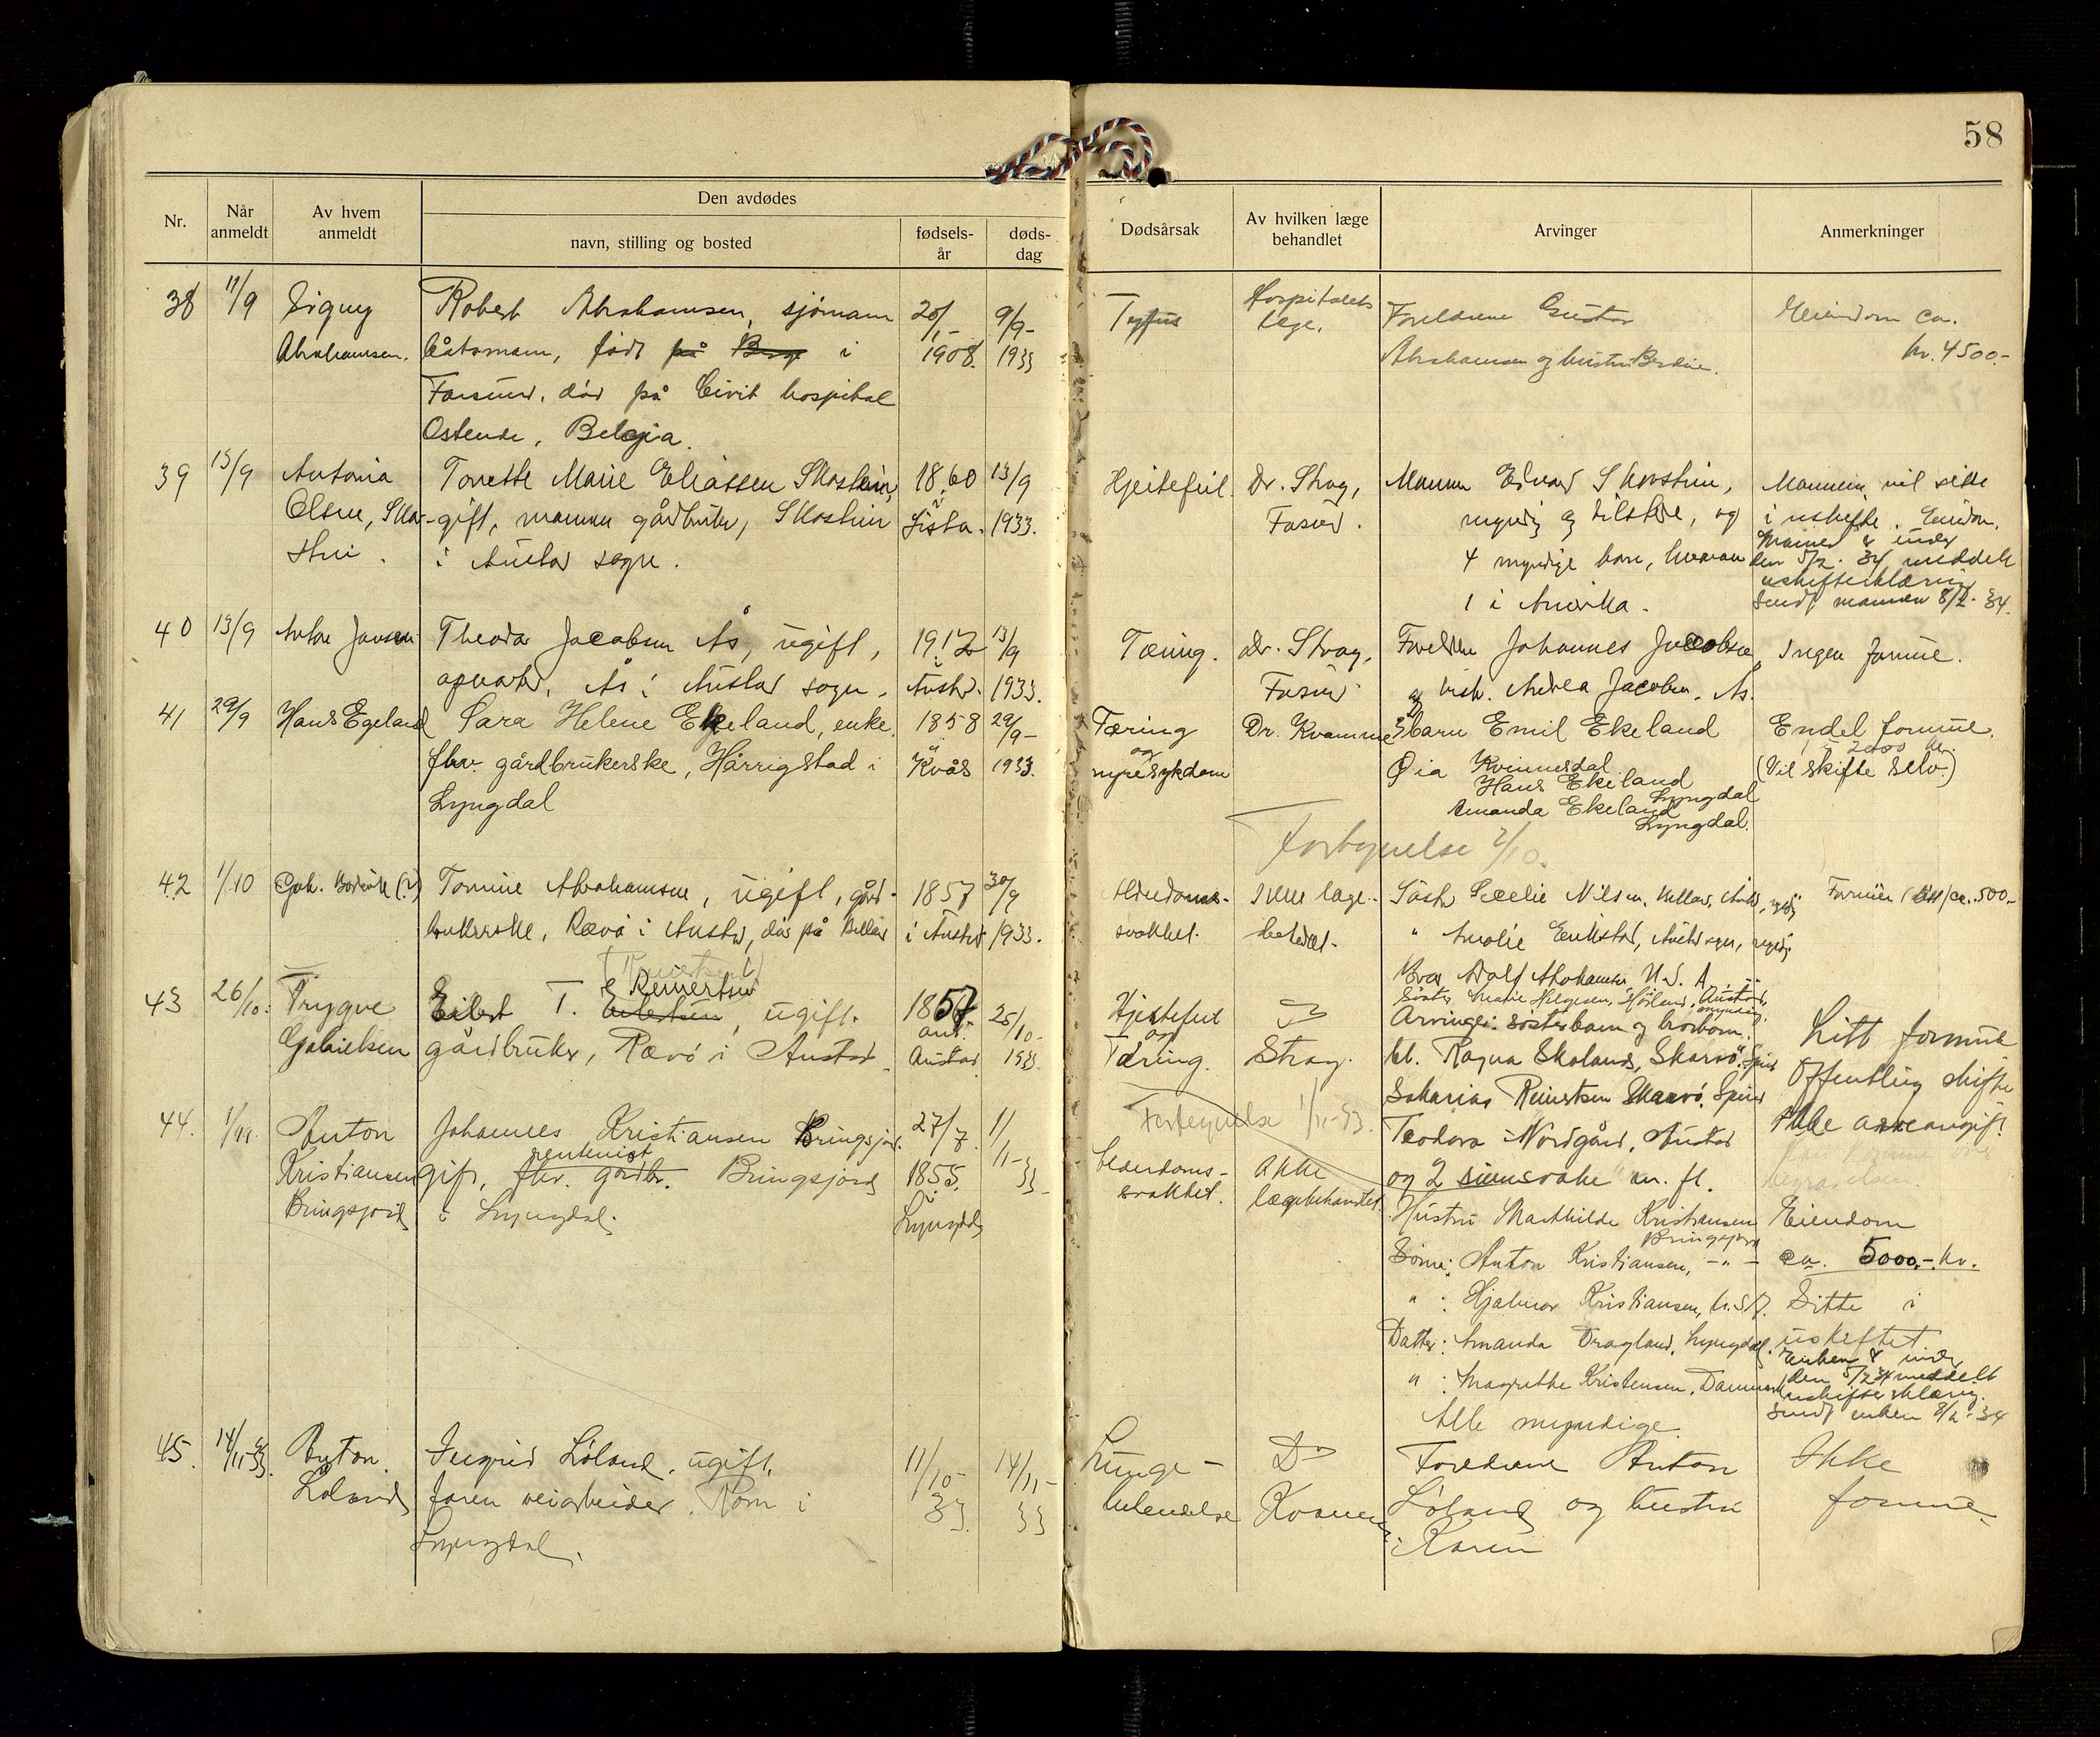 58
Nr.
Når anmeldt
Av hvem anmeldt
Den avdødes
navn, stilling og bosted
fødsels-år
døds-dag
Dødsårsak
Av hvilken læge behandlet
Arvinger
Anmerkninger
38 11/9 Signy Robert Abrahamsen, sjømann 20/ 9/9-
Abrahamsen. båtsmann, født på i 1908. 1933
Farsund, død på Civit hospital
Ostende, Belgia.
Tyfus Hospitalets læge. Foreldrene Gustav
Abrahamsen og hustru
Eiendom ca.
kr. 4500.-
39 13/9 Antonia Tonette Marie Eliassen Skostein, 1860 13/9
Olsen, Sko- gift, mannen gårdbruker, Skostein i Lista. 1933.
stein. i Austad sogn.
Hjertefeil. Dr. Skog, Farsund.
Mannen Edvard Skostein,
myndig og tilstede, og
4 myndige barn, hvorav
1 i Amerika.
Mannen vil sitte
i uskifte. Eiendom.
Mannen er under
den 5/2. 34 meddelt
uskifteerklæring
Sendt mannen 8/2. 34.
40 13/9 Anton Jansen Theodor Jacobsen Ås, ugift, 1912 13/9
Ås i Austad sogn. i Austad. 1933.
Tæring. Dr. Skog, Farsund
Foreldre Johannes Jacobsen
og hustr. Andrea Jacobsen, Ås.
Ingen formue.
41 29/9 Hans Egeland Sara Helene Ekeland, enke, 1858 29/9-
fhv. gårdbrukerske, Hårrigstad i Kvås 1933.
Lyngdal
Tæring
og
nyresykdom
Dr. Kvamme
3 barn Emil Ekeland
Øia Kvinnesdal
Hans Ekeland
Lyngdal
Amanda Ekeland
Lyngdal.
Endel formue.
2000 kr.
(Vil skifte selv.)
42 1/10 Tomine Abrahamsen, ugift, gård- 1857 30/9
brukerske, Rævø i Austad, død på i Austad 1933.
Alderdoms-
svakhet.
Ikke læge-
behandl.
Søster Nilsen, ugift
" Amalie
Bror Adolf Abrahamsen, U.S.A.
Søster Marie Helgesen, Høiland, Austad,
Formue ca. 500.-
43 26/10. Trygve Eilert T. Reinertsen, ugift. 1857 25/10-
Gabrielsen gårdbruker, Rævø i Austad. ant. Austad 1933.
Hjertefeil
og
Tæring.
Dr Skog.
Arvinger: søsterbarn og brorbarn.
bl. Ragna Skoland, Skarvø,
Sakarias Reinertsen Skarvø, Spind
Teodora Nordgård, Austad
og 2 sinnsvake m. fl.
Litt formue
Offentlig skifte
Ikke arveavgift.
44. 1/11. Anton Johannes Kristiansen Bringsjord. 27/7. 1/11-
Kristiansen gift, rentenist fhv. gårdbr. Bringsjord 1855. 33-
Bringsjord i Lyngdal. i Lyngdal
Alderdoms-
svakhet.
Ikke
lægebehandlet.
Hustru Mathilde Kristiansen
Bringsjord
Sønn: Anton Kristiansen, -"-
" : Hjalmar Kristiansen, U.S.A.
Datter: Amanda Dragland, Lyngdal.
" : Magrethe Kristensen, Danmark
Alle myndige.
Eiendom
ca. 5000.- kr.
Sitte i
uskiftet
Enken er under
den 5/2 34 meddelt
uskifteerklæring.
Sendt enken 8/2-34
45. 14/11.33. Anton Ingrid Løland, ugift, 11/10- 14/11-
Løland faren veiarbeider. Rom i 33. 33
Lyngdal.
Lunge-
betendelse
Dr
Kvamme
Foreldrene Anton
Løland og hustru
Karen
Ikke
formue.